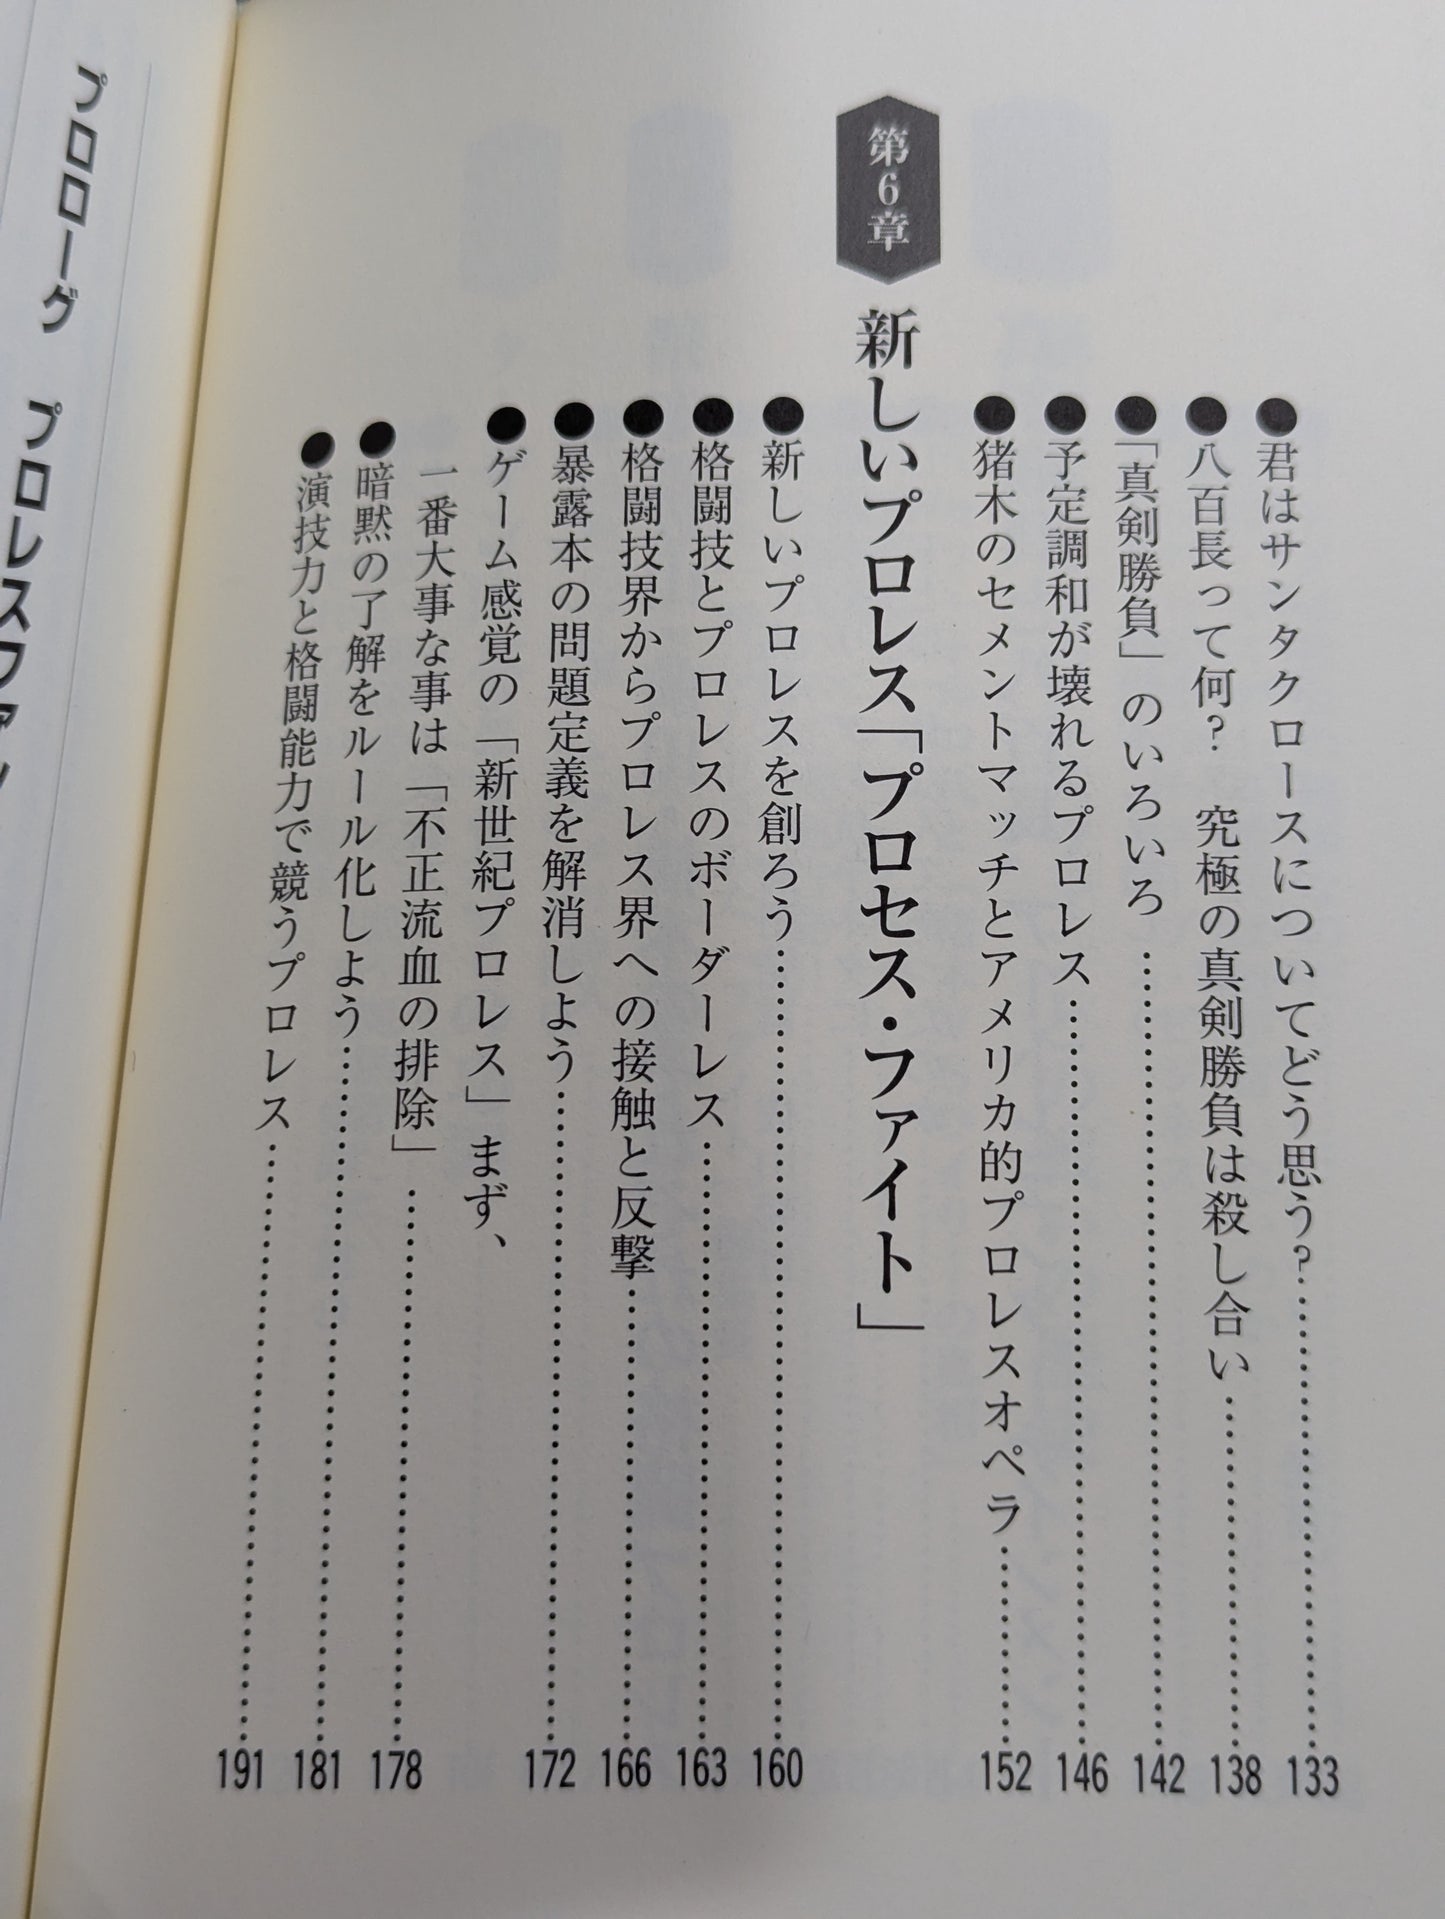 君はサンタクロースについてどう思う？……………………133
●八百長って何？　究極の真剣勝負は殺し合い……………………138
●「真剣勝負」のいろいろ……………………142
●予定調和が壊れるプロレス……………………146
●猪木のセメントマッチとアメリカ的プロレスオペラ……………………152
第6章　新しいプロレス「プロセス・ファイト」
●新しいプロレスを創ろう……………………160
●格闘技とプロレスのボーダーレス……………………163
●格闘技界からプロレス界への接触と反撃……………………166
●暴露本の問題定義を解消しよう……………………172
●ゲーム感覚の「新世紀プロレス」まず、
一番大事な事は「不正流血の排除」……………………178
●暗黙の了解をルール化しよう……………………181
●演技力と格闘能力で競うプロレス……………………191
プロローグ　プロレスファン